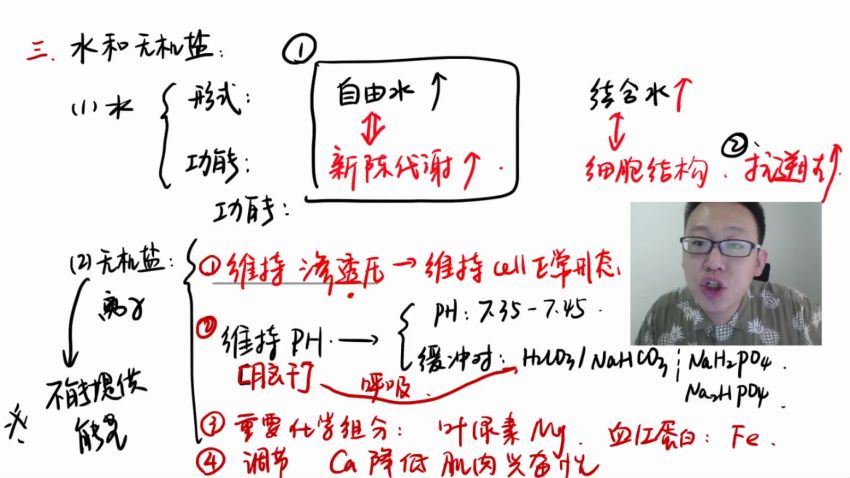 三、水和无机盐:
(1)水 形式: ① 自由水↑ 结合水↑
功能: 新陈代谢↑. 细胞结构. ② 抗逆性↑.
功能:
(2)无机盐: ①维持渗透压→维持cell正常形态.
离子
② 维持PH. → PH: 7.35-7.45.
[肝] 呼吸 缓冲对: H2CO3/NaHCO3; NaH2PO4.
Na2HPO4.
不能提供
能量
③ 重要化学组分: 叶绿素Mg. 血红蛋白: Fe.
④ 调节 Ca降低肌肉兴奋性